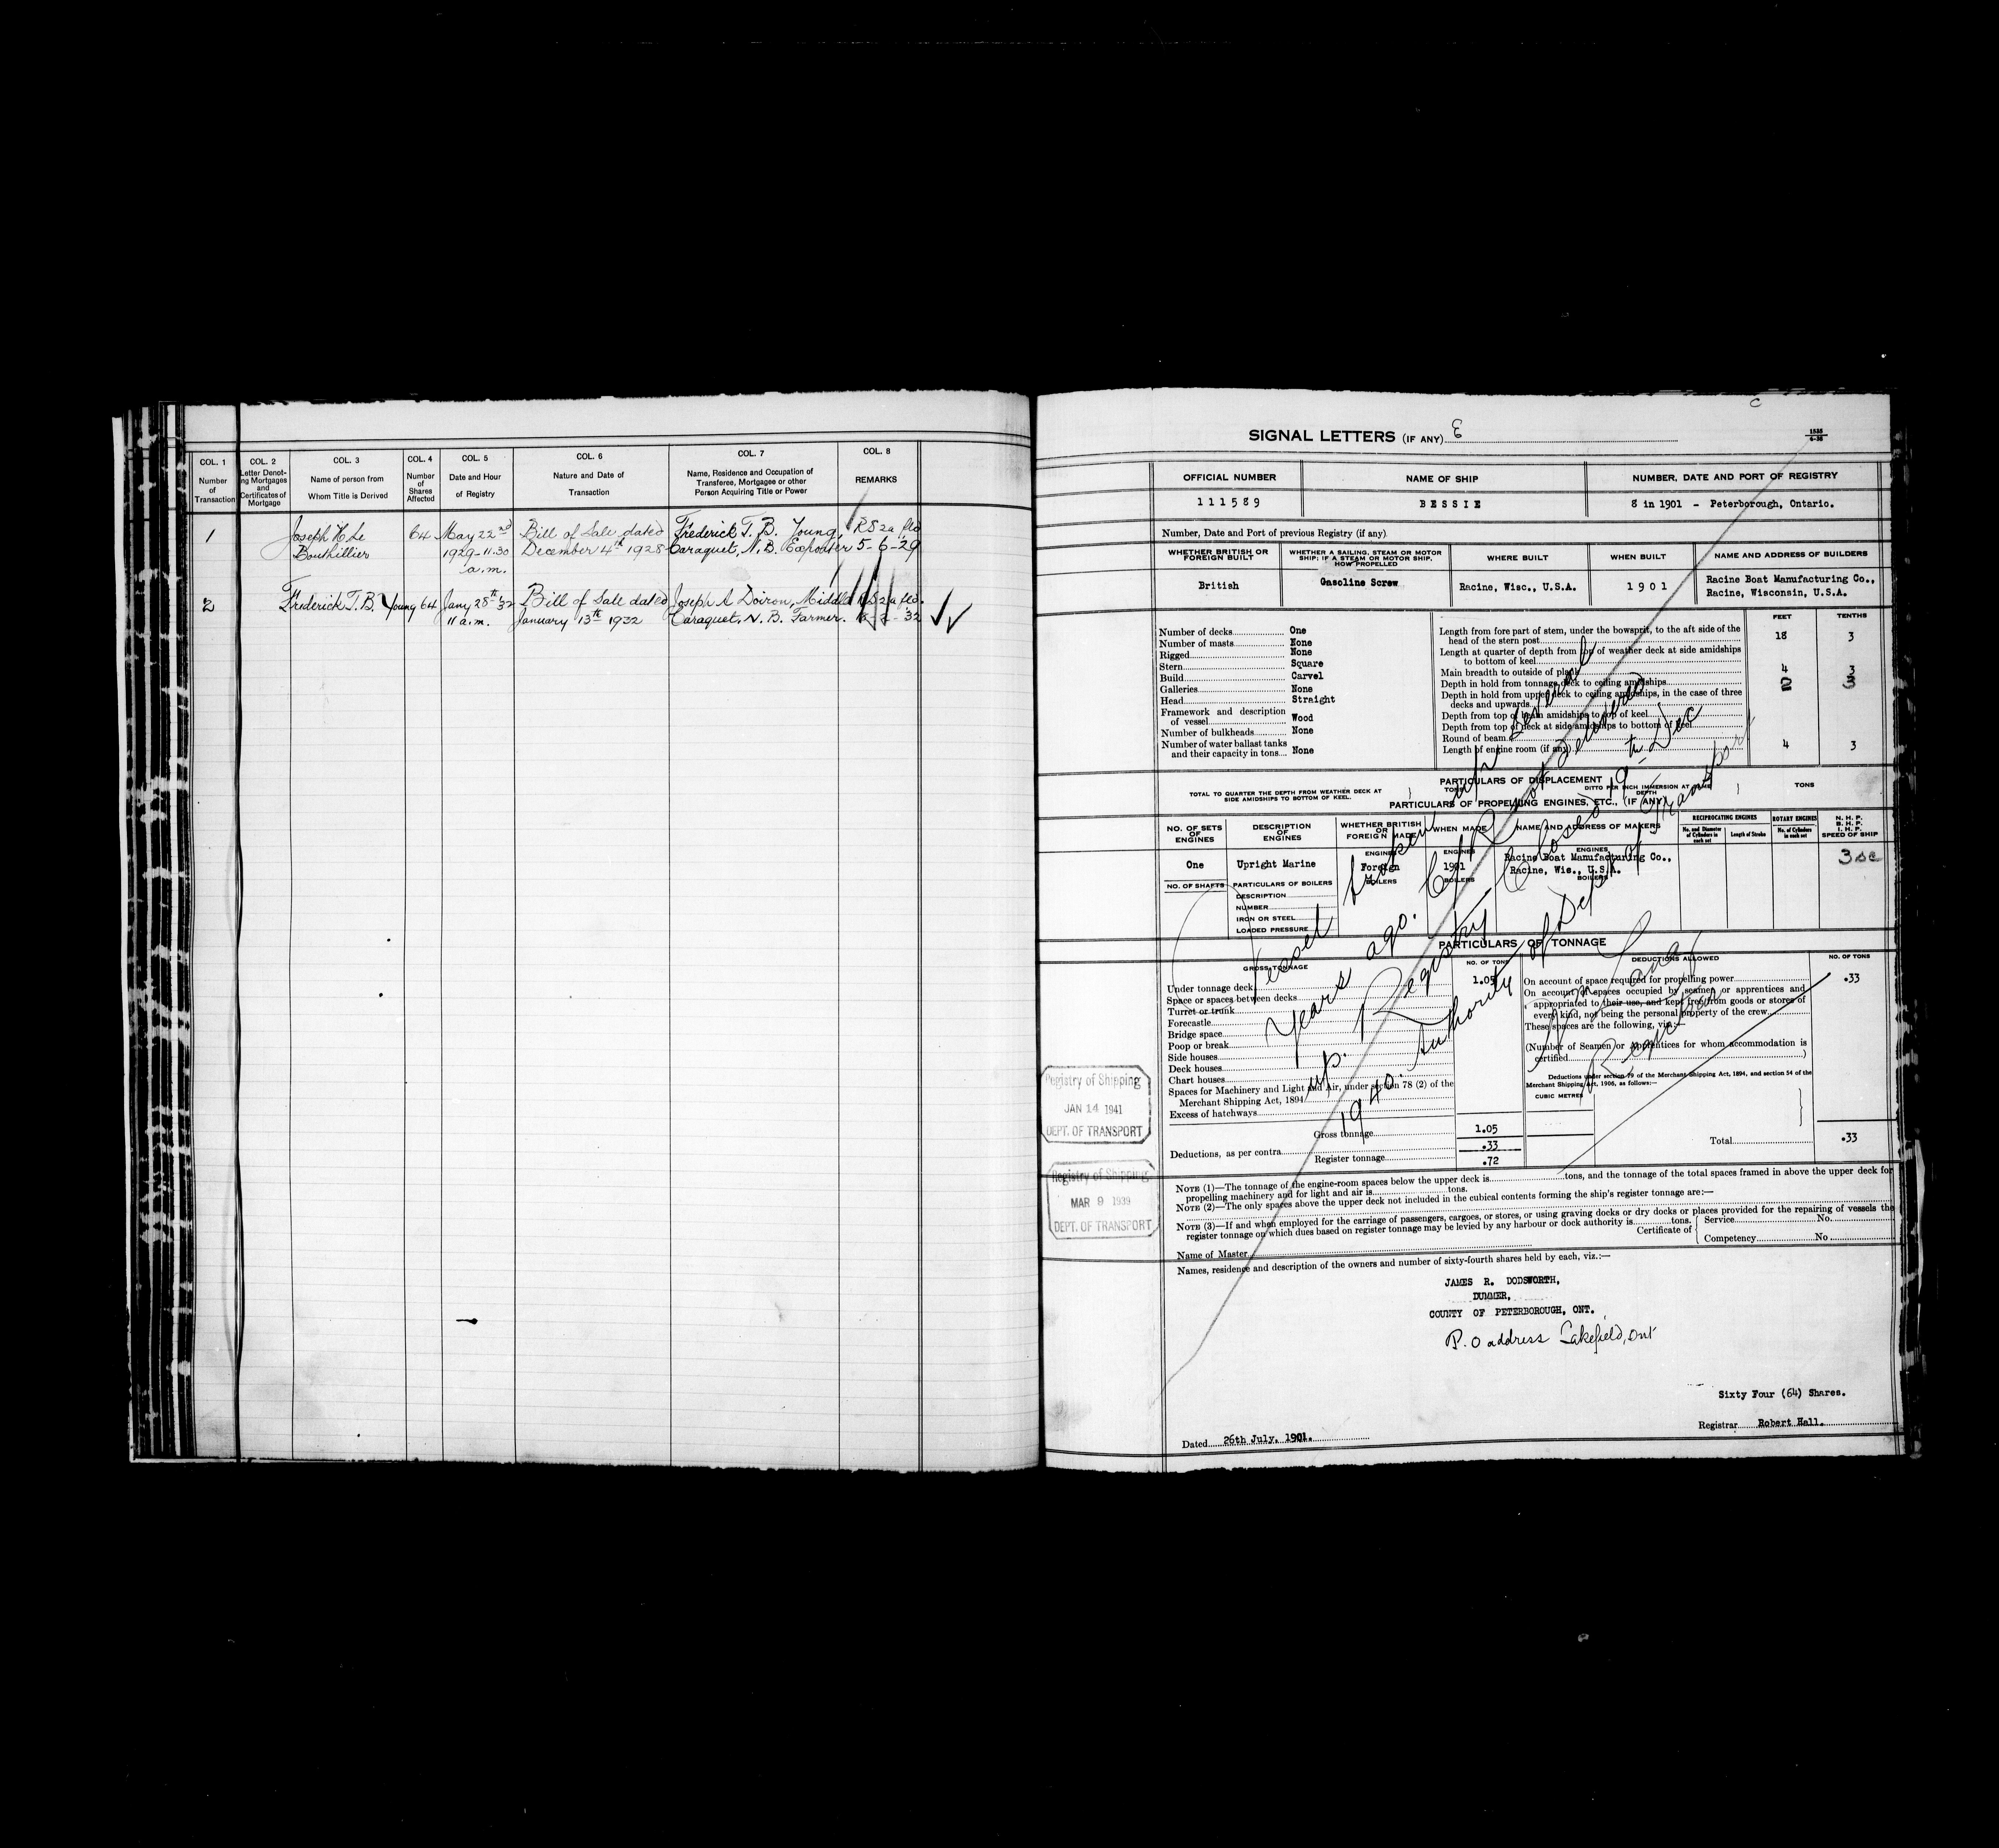 COL. 1 COL. 2 COL. 3 COL. 4 COL. 5 COL. 6 COL. 7 COL. 8
Number of Transaction
Letter Denoting Mortgages and Certificates of Mortgage
Name of person from Whom Title is Derived
Number of Shares Affected
Date and Hour of Registry
Nature and Date of Transaction
Name, Residence and Occupation of Transferee, Mortgagee or other Person Acquiring Title or Power
REMARKS
1 Joseph H. Le 64 May 22nd Bill of Sale dated Frederick T. B. Young, RS2a fld
Bouthillier 1929-11.30 December 4th 1928 Caraquet, N.B. Exporter 5-6-29
a.m.
2 Frederick T. B. Young 64 Jany 28th 32 Bill of Sale dated Joseph A Doiron, Middle RS2a fld.
11 a.m. January 13th 1932 Caraquet, N. B. Farmer. 32
C
SIGNAL LETTERS (IF ANY)
OFFICIAL NUMBER NAME OF SHIP NUMBER, DATE AND PORT OF REGISTRY
111589 BESSIE 8 in 1901 - Peterborough, Ontario.
Number, Date and Port of previous Registry (if any)
WHETHER BRITISH OR FOREIGN BUILT
WHETHER A SAILING, STEAM OR MOTOR SHIP; IF A STEAM OR MOTOR SHIP, HOW PROPELLED
WHERE BUILT WHEN BUILT NAME AND ADDRESS OF BUILDERS
British Gasoline Screw Racine, Wisc., U.S.A. 1901 Racine Boat Manufacturing Co.,
Racine, Wisconsin, U.S.A.
FEET TENTHS
Number of decks One
Number of masts None
Rigged None
Stern Square
Build Carvel
Galleries None
Head Straight
Framework and description of vessel Wood
Number of bulkheads None
Number of water ballast tanks and their capacity in tons None
Length from fore part of stem, under the bowsprit, to the aft side of the head of the stern post 18 3
Length at quarter of depth from top of weather deck at side amidships to bottom of keel
Main breadth to outside of plank 4 3
Depth in hold from tonnage deck to ceiling amidships
Depth in hold from upper deck to ceiling amidships, in the case of three decks and upwards
Depth from top of beam amidships to top of keel
Depth from top of deck at side amidships to bottom of keel
Round of beam
Length of engine room (if any) 4 3
PARTICULARS OF DISPLACEMENT
TOTAL TO QUARTER THE DEPTH FROM WEATHER DECK AT SIDE AMIDSHIPS TO BOTTOM OF KEEL. TONS DITTO PER INCH IMMERSION AT SAME DEPTH TONS
PARTICULARS OF PROPELLING ENGINES, ETC., (IF ANY)
NO. OF SETS OF ENGINES
DESCRIPTION OF ENGINES
WHETHER BRITISH OR FOREIGN MADE
WHEN MADE
NAME AND ADDRESS OF MAKERS
RECIPROCATING ENGINES
No. and Diameter of Cylinders in each set
Length of Stroke
ROTARY ENGINES
No. of Cylinders in each set
N. H. P.
B. H. P.
I. H. P.
SPEED OF SHIP
ENGINES ENGINES ENGINES
One Upright Marine Foreign 1901 Racine Boat Manufacturing Co.,
Racine, Wis., U.S.A.
NO. OF SHAFTS PARTICULARS OF BOILERS BOILERS BOILERS BOILERS
DESCRIPTION
NUMBER
IRON OR STEEL
LOADED PRESSURE
PARTICULARS OF TONNAGE
GROSS TONNAGE NO. OF TONS DEDUCTIONS ALLOWED NO. OF TONS
Under tonnage deck 1.05
Space or spaces between decks
Turret or trunk
Forecastle
Bridge space
Poop or break
Side houses
Deck houses
Chart houses
Spaces for Machinery and Light and Air, under section 78 (2) of the Merchant Shipping Act, 1894
Excess of hatchways
Gross tonnage 1.05
Deductions, as per contra .33
Register tonnage .72
On account of space required for propelling power .33
On account of spaces occupied by seamen or apprentices and appropriated to their use, and kept free from goods or stores of every kind, not being the personal property of the crew
These spaces are the following, viz:—
(Number of Seamen or Apprentices for whom accommodation is certified )
Deductions under section 79 of the Merchant Shipping Act, 1894, and section 54 of the Merchant Shipping Act, 1906, as follows:—
CUBIC METRES
Total .33
Vessel broken up several
years ago. C/R not delivered
up. Registry closed 19th Dec
1940. Authority of Dept of Transport
Registrar
Registry of Shipping
JAN 14 1941
DEPT. OF TRANSPORT
Registry of Shipping
MAR 9 1939
DEPT. OF TRANSPORT
NOTE (1)—The tonnage of the engine-room spaces below the upper deck is tons, and the tonnage of the total spaces framed in above the upper deck for
propelling machinery and for light and air is tons.
NOTE (2)—The only spaces above the upper deck not included in the cubical contents forming the ship's register tonnage are:—
NOTE (3)—If and when employed for the carriage of passengers, cargoes, or stores, or using graving docks or dry docks or places provided for the repairing of vessels the
register tonnage on which dues based on register tonnage may be levied by any harbour or dock authority is tons.
Certificate of { Service No.
Competency No
Name of Master
Names, residence and description of the owners and number of sixty-fourth shares held by each, viz.:—
JAMES R. DODSWORTH,
DUMMER,
COUNTY OF PETERBOROUGH, ONT.
P. O address Lakefield, Ont
Sixty Four (64) Shares.
Registrar Robert Hall.
Dated 26th July, 1901.